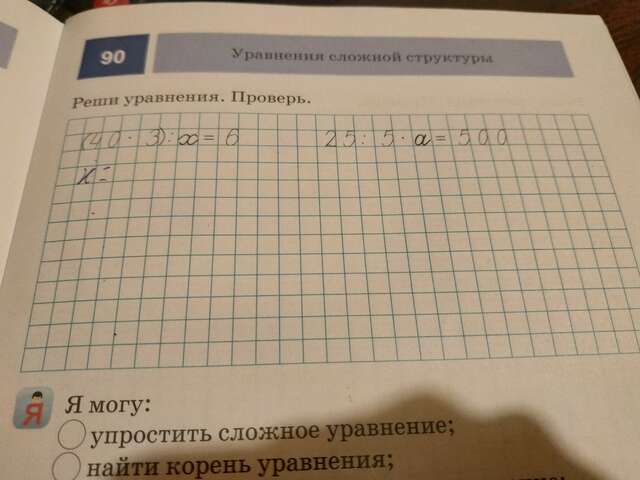 90
Уравнения сложной структуры
Реши уравнения. Проверь.
(40 · 3) : x = 6
25 : 5 · a = 500
x =
Я
Я могу:
упростить сложное уравнение;
найти корень уравнения;